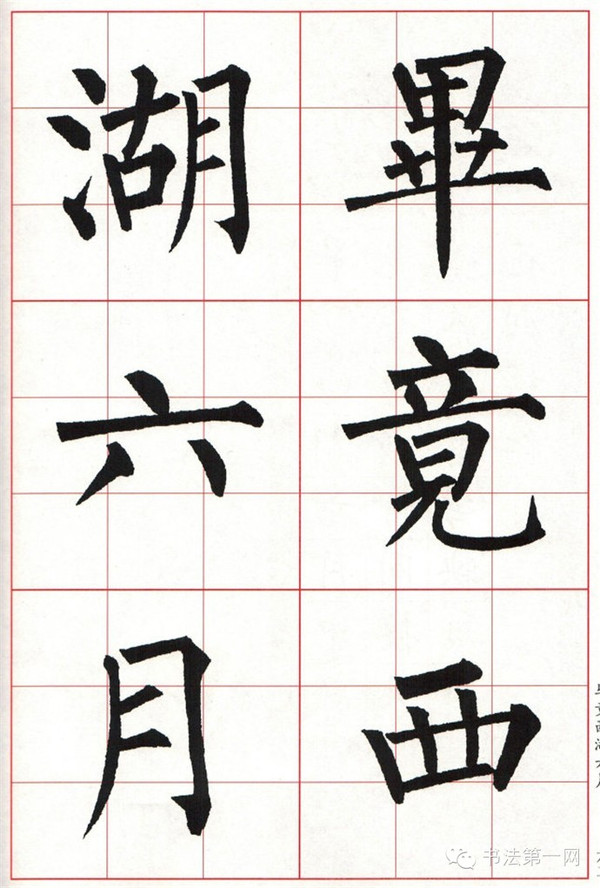 畢竟西
湖六月
书法第一网